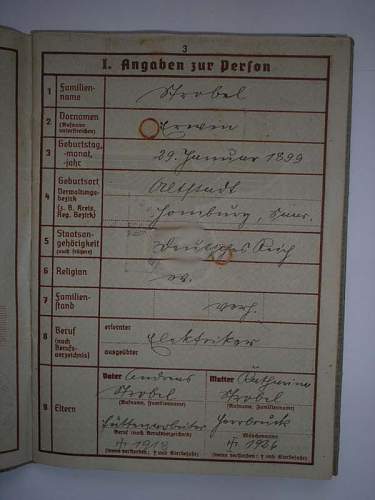 3
I. Angaben zur Person
1 Familienname Strobel
2 Vornamen (Rufname unterstreichen) Erwin
3 Geburtstag, -monat, -jahr 29. Januar 1899
4 Geburtsort Altstadt
Verwaltungsbezirk (z. B. Kreis, Reg. Bezirk) Homburg, Saar.
5 Staatsangehörigkeit (auch frühere) Deutsches Reich
6 Religion ev.
7 Familienstand verh.
8 Beruf (nach Berufsverzeichnis) erlernter Elektriker
ausgeübter
9 Eltern
Vater Andreas Mutter Katharina
Strobel Strobel
(Rufname, Familienname) (Rufname, Familienname)
Hüttenarbeiter
Beruf (nach Berufsverzeichnis) Mädchenname
† 1918 † 1926
(wenn verstorben: † und Sterbejahr) (wenn verstorben: † und Sterbejahr)